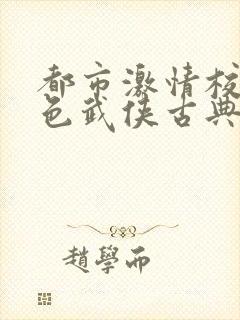 都市激情校
色武侠古典
趙學而